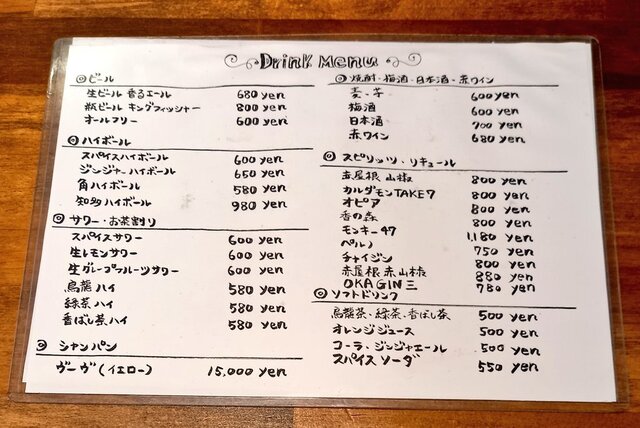 Drink Menu
◎ビール
生ビール 香るエール 680 yen
瓶ビール キングフィッシャー 800 yen
オールフリー 600 yen
◎ハイボール
スパイスハイボール 600 yen
ジンジャーハイボール 650 yen
角ハイボール 580 yen
知多ハイボール 980 yen
◎サワー・お茶割り
スパイスサワー 600 yen
生レモンサワー 600 yen
生グレープフルーツサワー 600 yen
烏龍ハイ 580 yen
緑茶ハイ 580 yen
香ばし茶ハイ 580 yen
◎シャンパン
ヴーヴ(イエロー) 15,000 yen
◎焼酎・梅酒・日本酒・赤ワイン
麦・芋 600 yen
梅酒 600 yen
日本酒 700 yen
赤ワイン 680 yen
◎スピリッツ・リキュール
赤屋根 山椒 800 yen
カルダモンTAKE7 800 yen
オピア 800 yen
香の森 800 yen
モンキー47 1,180 yen
ペルノ 750 yen
チャイジン 800 yen
赤屋根 赤山椒 880 yen
OKAGIN 三 780 yen
◎ソフトドリンク
烏龍茶・緑茶・香ばし茶 500 yen
オレンジジュース 500 yen
コーラ・ジンジャエール 500 yen
スパイスソーダ 550 yen